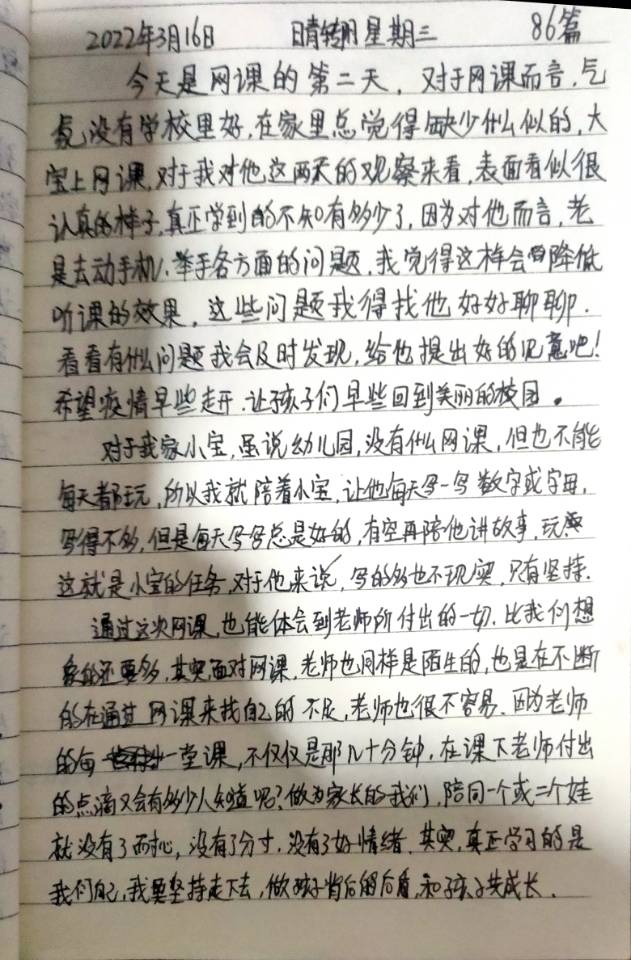 2022年3月16日 晴转阴 星期三 86篇
今天是网课的第二天，对于网课而言，气
氛没有学校里好，在家里总觉得缺少什么似的，大
宝上网课，对于我对他这两天的观察来看，表面看似很
认真的样子，真正学到的不知有多少了，因为对他而言，老
是去动手机、举手各方面的问题，我觉得这样会降低
听课的效果，这些问题我得找他好好聊聊．
看看有什么问题我会及时发现，给他提出好的见意吧！
希望疫情早些走开．让孩子们早些回到美丽的校园。
对于我家小宝，虽说幼儿园，没有什么网课，但也不能
每天都玩，所以我就陪着小宝，让他每天写一写数字或字母，
写得不多，但是每天写写总是好的，有空再陪他讲故事，玩
这就是小宝的任务，对于他来说，写的多也不现实，只有坚持．
通过这次网课，也能体会到老师所付出的一切．比我们想
象的还要多，其实面对网课，老师也同样是陌生的，也是在不断
的在通过网课来找自己的不足，老师也很不容易．因为老师
的每一堂课，不仅仅是那几十分钟，在课下老师付出
的点滴又会有多少人知道呢？做为家长的我们，陪同一个或二个娃
就没有了耐心，没有了分寸，没有了好情绪．其实，真正学习的是
我们自己，我要坚持走下去，做孩子背后的后盾，和孩子共成长．